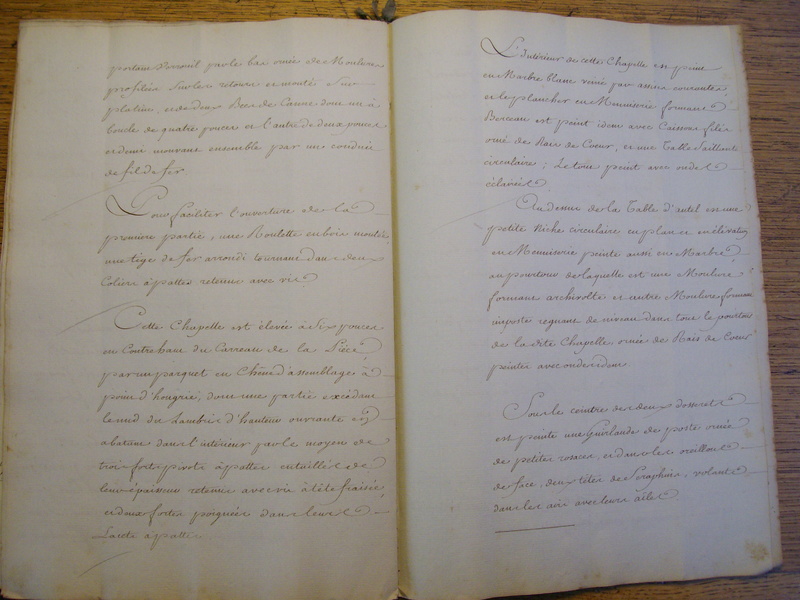 portant Verrouil par le bas ornée de Moulures
profilées sur les retours et monté sur
platine, et de deux Becs de Canne dont un à
boucle de quatre pouces et l'autre de deux pouces
et demi mouvans ensemble par une conduite
de fil de fer
Pour faciliter l'ouverture de la
première partie, une Roulette en bois montée
une tige de fer arrondi tournant dans deux
Coliers à pattes retenus avec vis
Cette Chapelle est élevée à Six pouces
en Contrehaut du Carreau de la Pièce
par un parquet en Chêne d'assemblage à
point d'hongrie, dont une partie excédant
le nud du Lambris d'hauteur ouvrante et
abatant dans l'intérieur par le moyen de
trois fortes pivots à pattes entaillés de
leur épaisseur retenus avec vis à tête fraisée,
et deux fortes poignées dans leurs
Lacets à pattes.
L'Intérieur de cette Chapelle est peint
en Marbre blanc veiné par assises
et le plancher en Menuiserie formant
Berceau est peint idem avec Caissons filés
orné de Rais de Coeur, et une Table Saillante
circulaire; Le tout peint avec ondes
éclairées
Au dessus de la Table d'autel est une
petite Niche circulaire en plan et en élévation
en Menuiserie peinte aussi en Marbre
au pourtour de laquelle est une Moulure
formant archivolte et autre Moulure formant
imposte regnant de niveau dans tout le pourtour
de la dite Chapelle ornée de Rais de Coeur
peintes avec ondes idem
Sous le ceintre des deux dosserets
est peinte une Guirlande de poste ornée
de petites rosaces, et dans les oreillons
de face, deux têtes de Seraphins, volants
dans les airs avec leurs ailes